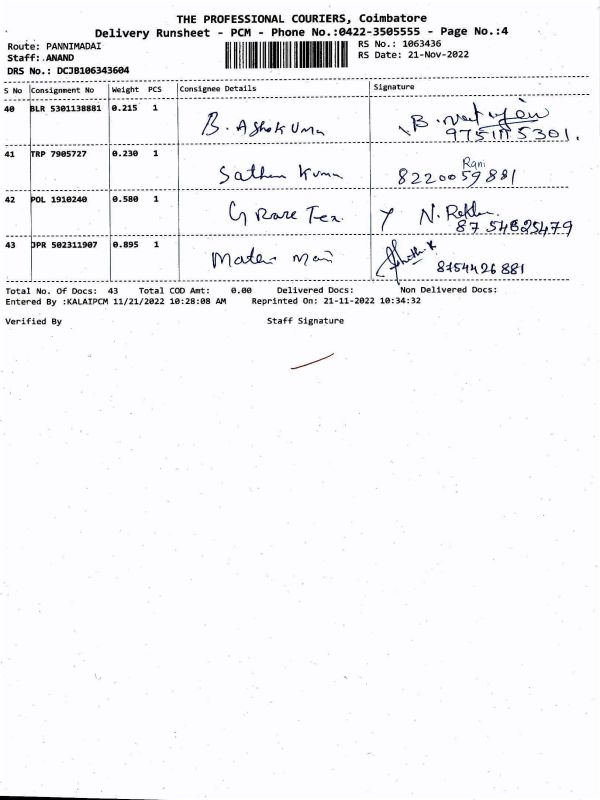 THE PROFESSIONAL COURIERS, Coimbatore
Delivery Runsheet - PCM - Phone No.:0422-3505555 - Page No.:4
Route: PANNIMADAI RS No.: 1063436
Staff: ANAND RS Date: 21-Nov-2022
DRS No.: DCJB106343604
S No Consignment No Weight PCS Consignee Details Signature
40 BLR 5301138881 0.215 1 B. Ashok Uma B.
41 TRP 7905727 0.230 1 Rani
8220059881
42 POL 1910240 0.580 1 N. Rekha
8754825479
43 JPR 502311907 0.895 1
8754426881
Total No. Of Docs: 43 Total COD Amt: 0.00 Delivered Docs: Non Delivered Docs:
Entered By :KALAIPCM 11/21/2022 10:28:08 AM Reprinted On: 21-11-2022 10:34:32
Verified By Staff Signature